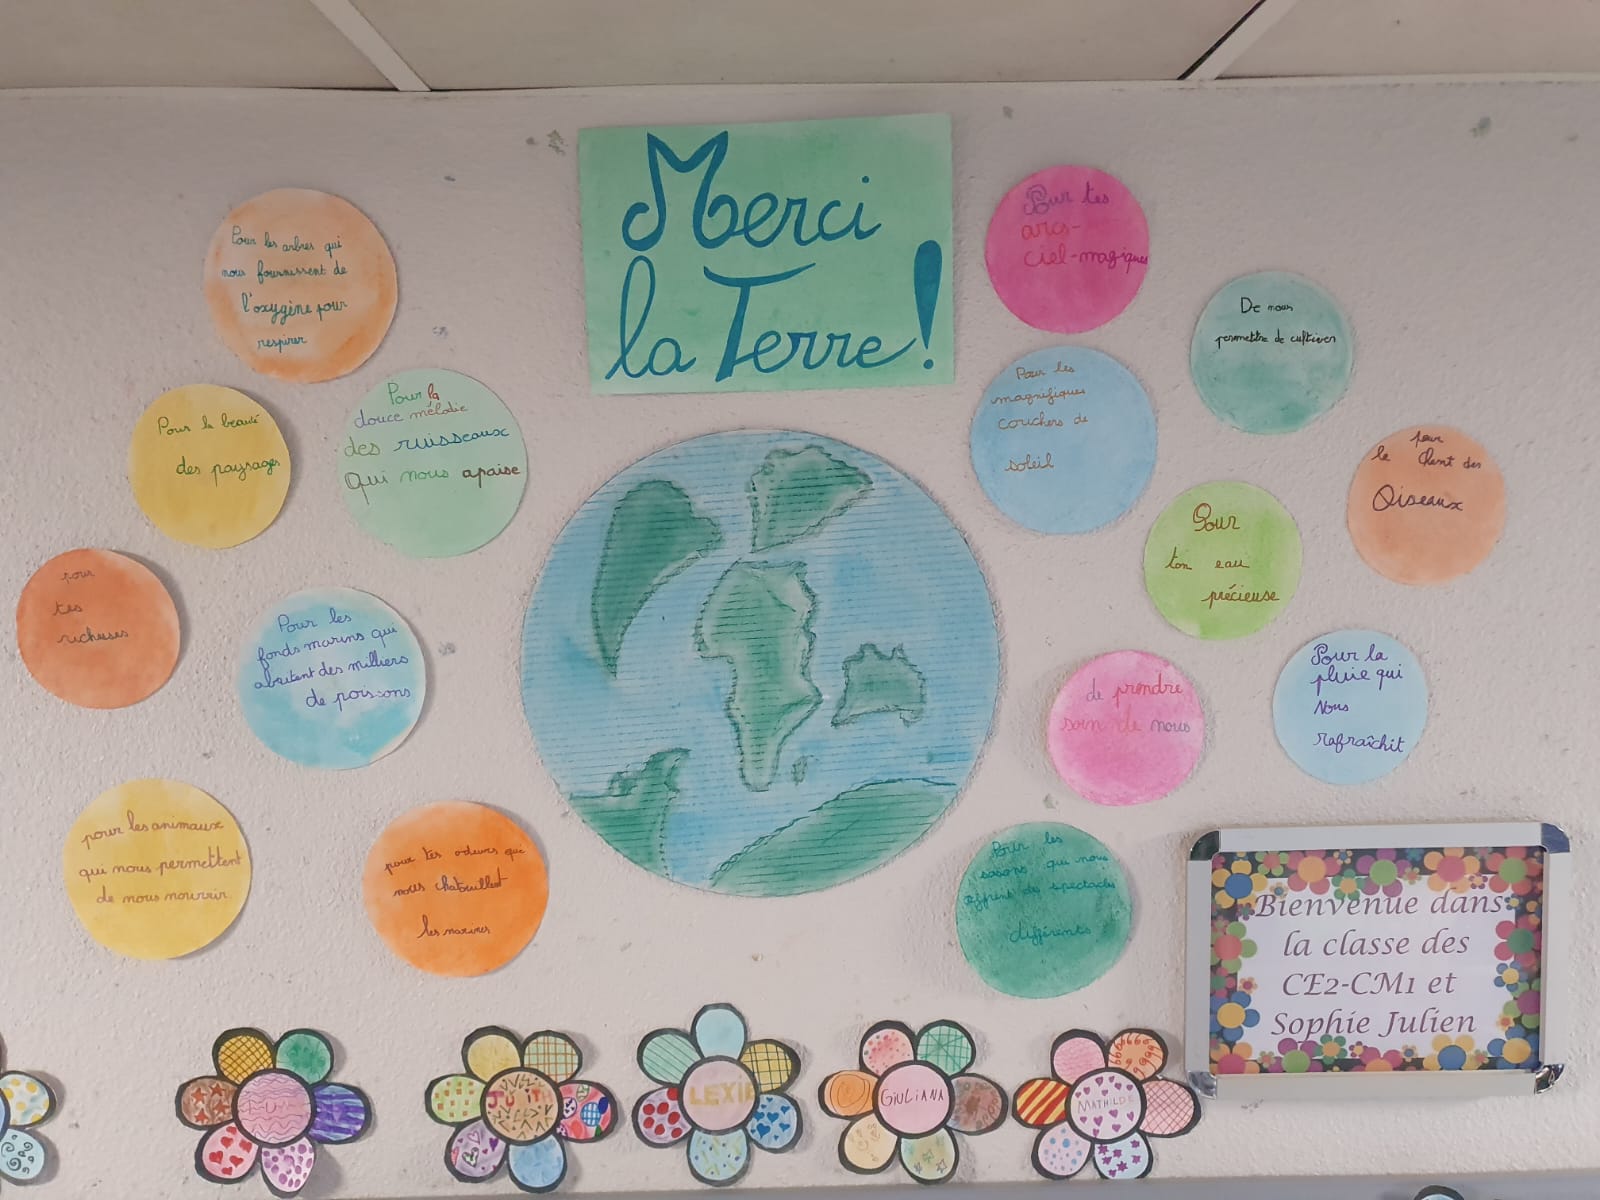 Merci
la Terre!
Pour les arbres qui
nous fournissent de
l'oxygène pour
respirer
Pour la beauté
des paysages
Pour la
douce mélodie
des ruisseaux
qui nous apaise
pour
tes
richesses
Pour les
fonds marins qui
abritent des milliers
de poissons
pour les animaux
qui nous permettent
de nous nourrir.
pour tes odeurs qui
nous chatouillent
les narines
Pour tes
arcs-
ciel-magiques
De nous
permettre de cultiver
Pour les
magnifiques
couchers de
soleil
pour
le chant des
Oiseaux
Pour
ton eau
précieuse
de prendre
soin de nous
Pour la
pluie qui
nous
rafraîchit
Pour les
saisons qui nous
offrent des spectacles
différents
Bienvenue dans
la classe des
CE2-CM1 et
Sophie Julien
LEXIE
GIULIANA
MATHILDE